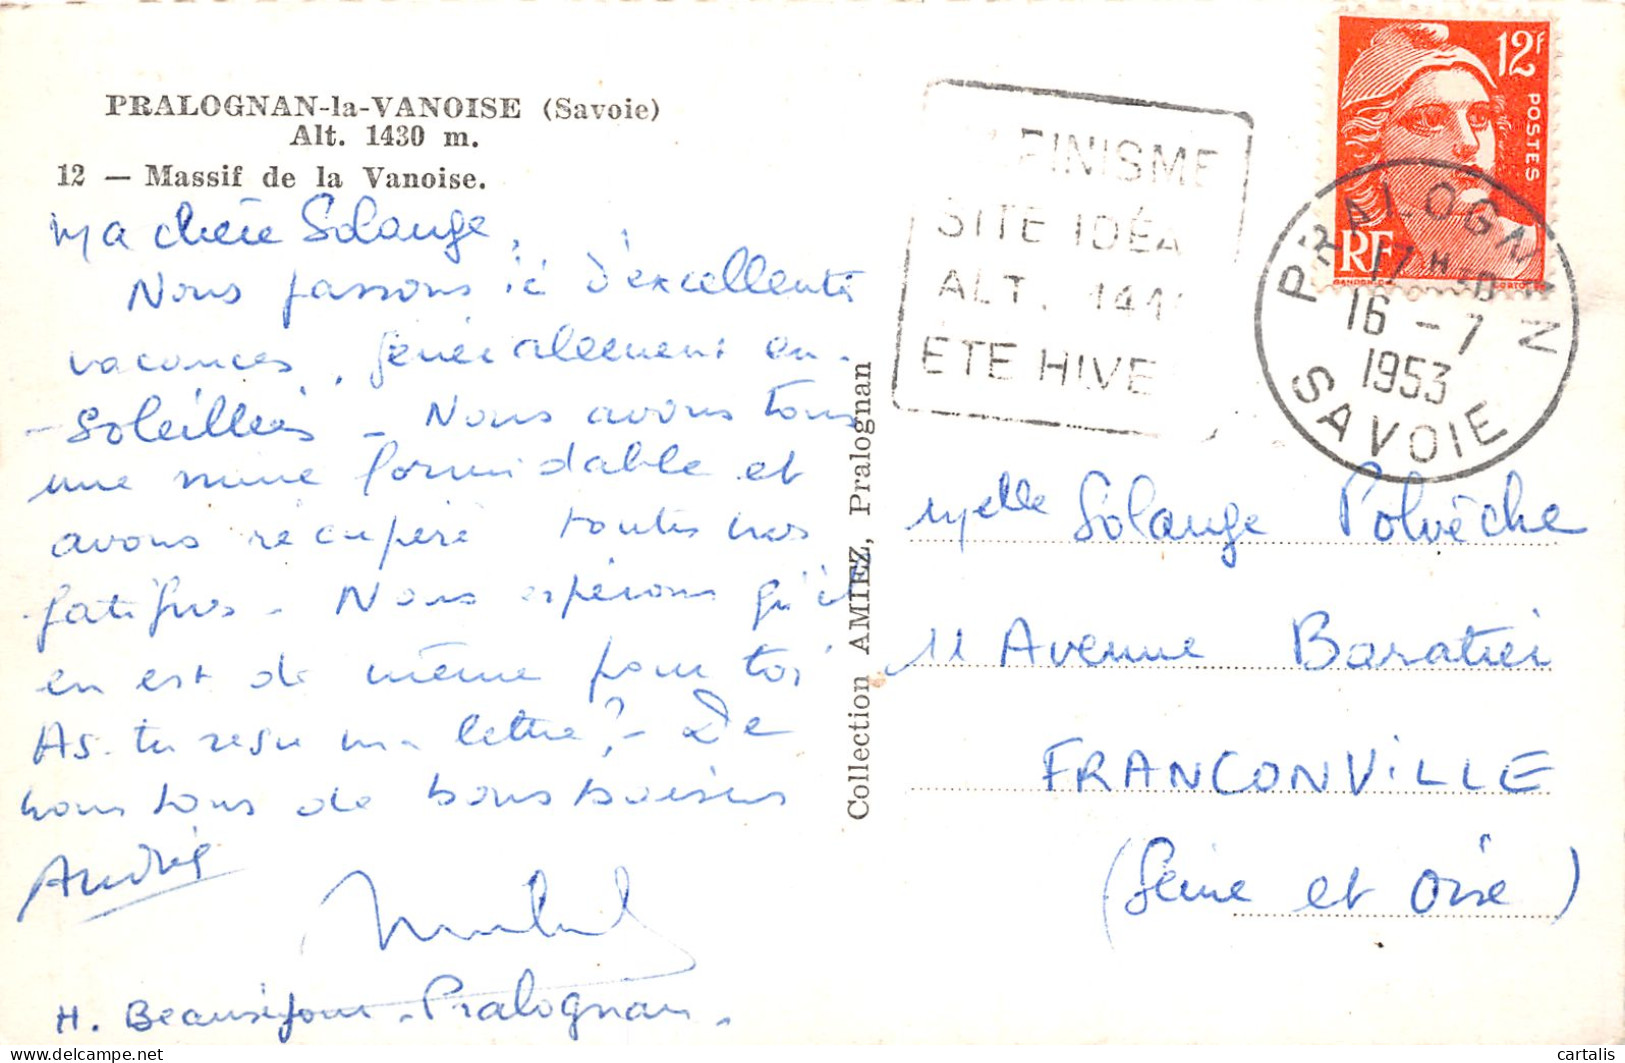 PRALOGNAN-la-VANOISE (Savoie)
Alt. 1430 m.
12 — Massif de la Vanoise.
Ma chère Solange,
Nous passons ici d'excellentes
vacances, généralement en-
-soleillées - Nous avons tous
une mine formidable et
avons récupéré toutes nos
fatigues - Nous espérons qu'il
en est de même pour toi
As-tu reçu ma lettre? - De
nous tous de bons baisers
André
H. Beauséjour - Pralognan -
Collection AMIEZ, Pralognan
PINISME
SITE IDÉA
ALT. 141
ÉTÉ HIVE
12F
POSTES
RF
GANDON
CORTOT
PRALOGNAN
17H30
16 - 7
1953
SAVOIE
Melle Solange Polvèche
11 Avenue Baratier
FRANCONVILLE
(Seine et Oise)
cartalis
delcampe.net